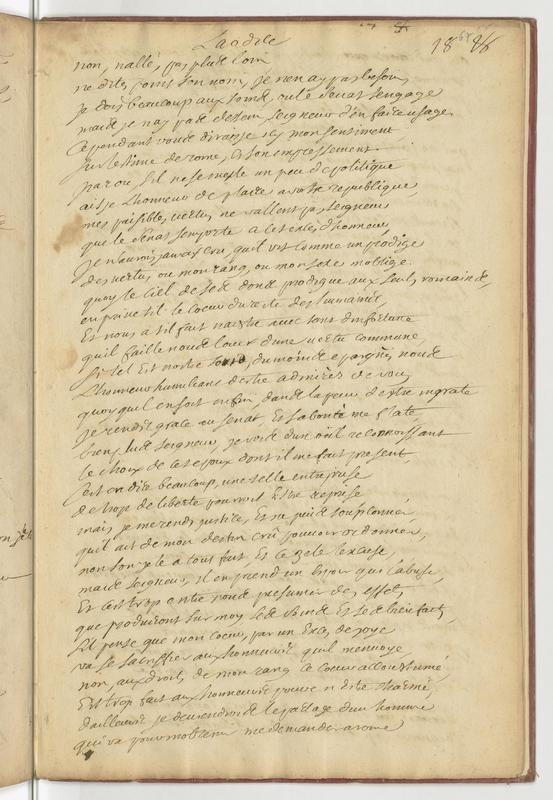 Laodice
non, n'allés pas plus loin
ne dites point son nom, je n'en ay pas besoin,
je dois beaucoup aux soins, ou le senat s'engage
mais je n'ay pas dessein, seigneur d'en faire usage.
Cependant vous diraije icy mon sentiment
sur l'estime de rome, et son empressement.
par ou, s'il ne se mesle un peu de politique
ais je l'honneur de plaire a votre republique,
mes paisibles vertus, ne vallent pas, seigneur
que le senat s'emporte a cet exces d'honneur,
je n'aurois jamais cru, qu'il vist comme un prodige
des vertus, ou mon rang, ou mon sexe m'oblige.
quoy le ciel de ses dons prodigue aux seuls romains,
en prive t'il le coeur du reste des humains,
Et nous a t'il fait naistre avec tant d'infortune
qu'il faille nous louer d'une vertu commune,
si tel est nostre sort, du moins epargnés nous
L'honneur humiliant d'estre admirés de vous,
quoy qu'il en soit enfin, dans la peur d'estre ingrate
je rends grace au senat, Et sa bonté me flate
bien plus seigneur, je vois d'un oeil reconnoissant
le choix de cet epoux dont il me fait present,
C'est en dire beaucoup, une telle entreprise
de trop de liberté pourroit estre reprise
mais je me rends justice, Et ne puis soupçonner,
qu'il ait de mon destin crû pouvoir ordonner,
non son zele a tout fait, Et ce zele l'excuse,
mais seigneur, il en prend un espoir qui l'abuse,
Et c'est trop entre nous presumer des effets,
que produiront sur moy ses soins Et ses bienfaits,
s'il pense que mon coeur, par un Exces de joye
va se sacrifier aux honneurs qu'il m'envoye,
non, aux droits, de mon rang ce coeur accoustumé,
Est trop fait aux honneurs pour en être charmé,
d'ailleurs je deviendrois le partage d'un homme
qui va pour m'obtenir me demander a rome